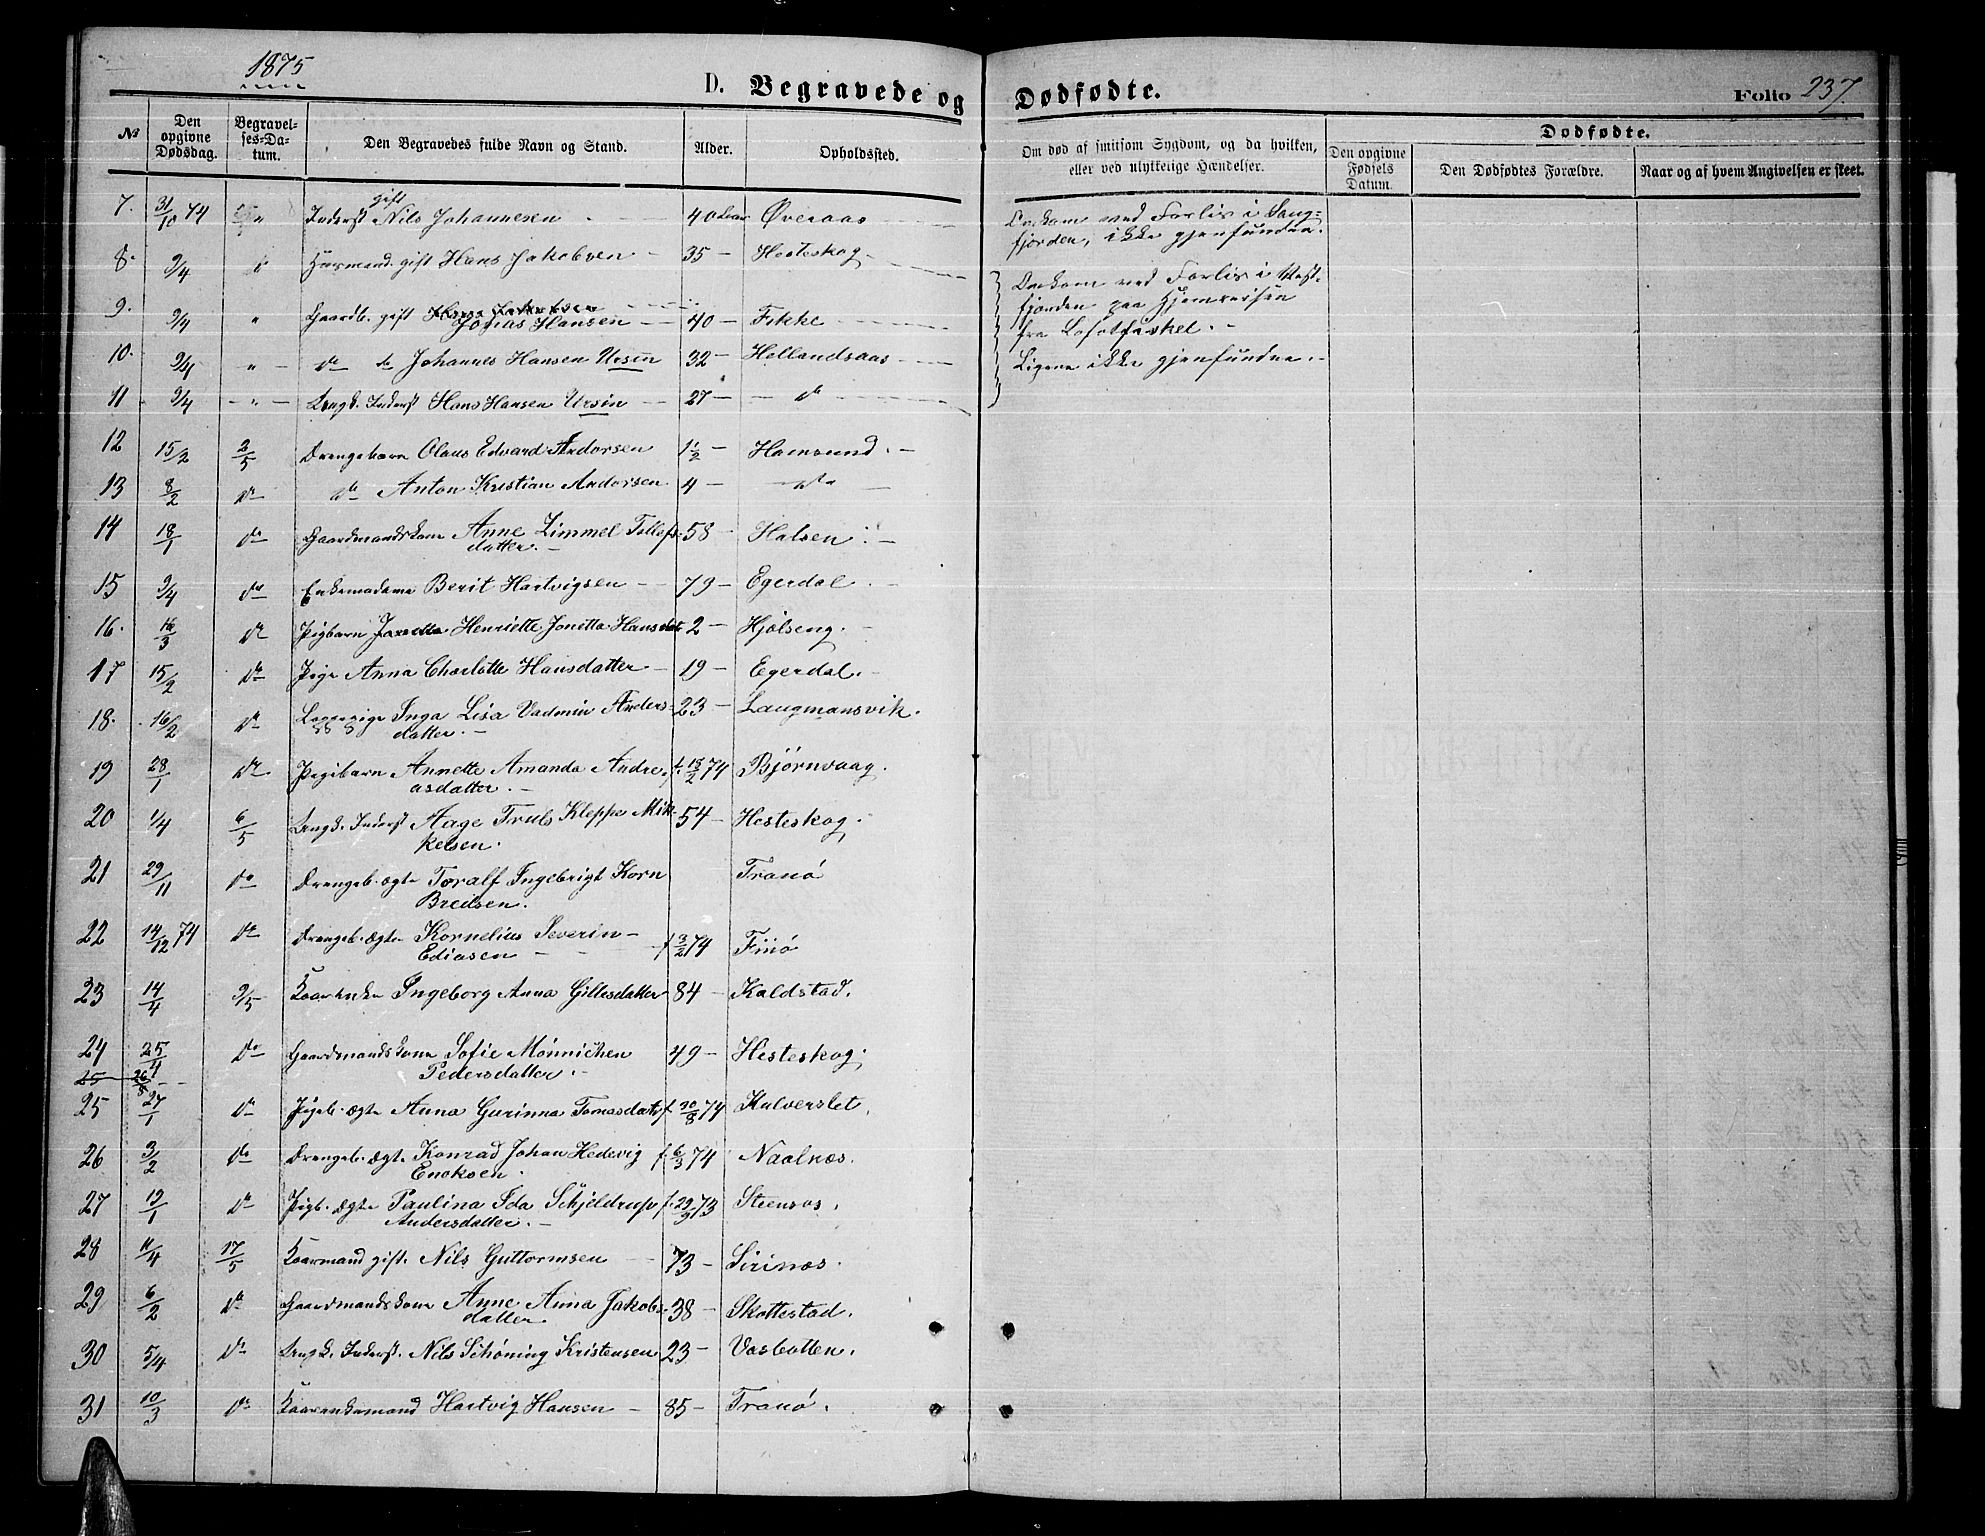 1875
D. Begravede og Dødfødte.
Folio 237.
№
Den opgivne Dødsdag.
Begravelses-Datum.
Den Begravedes fulde Navn og Stand.
Alder.
Opholdssted.
Om død af smitsom Sygdom, og da hvilken, eller ved ulykkelige Hændelser.
Dødfødte.
Den opgivne Fødsels Datum.
Den Dødfødtes Forældre.
Naar og af hvem Angivelsen er skeet.
7. 31/10 74 " Inderst gift Nils Johannesen 40 Øveraas Omkom ved Forlis i Sag-
fjorden, ikke gjenfunden.
8. 9/4 " Huusmand gift Hans Jakobsen 35 Hesteskog
Omkom ved Forlis i Vest-
fjorden paa Hjemreisen
fra Lofotfisket.
Ligene ikke gjenfundne.
9. 9/4 " Gaardb. gift Hans Jakobsen
Jonas Hansen 40 Fikke
10. 9/4 " do do Johannes Hansen Ursin 32 Hellandsaas
11 9/4 " Ungk. Inderst Hans Hansen Ursin 27 do
12 15/2 2/5 Drengebarn Olaus Edvard Andorsen 1 1/2 Hamsund.
13 8/2 do do Anton Kristian Andorsen 4 do
14 18/1 do Gaardmandskone Anne Limmel Tollefs-
datter. 58 Halsen
15 9/4 do Enkemadame Berit Hartvigsen 79 Egerdal
16. 16/3 do Pigbarn Henriette Jonetta Hansdat 2 Hjelseng.
17 15/2 do Pige Anna Charlotte Hansdatter 19 Egerdal.
18. 16/2 do Lappepige Inga Lisa Vadmin Anders-
datter. 23 Laugmansvik.
19 28/1 do Pigebarn Annette Amanda Andre-
asdatter. f. 13/2 74 Bjørnvaag.
20 1/4 6/5 Ungk. Inderst Aage Truls Kleppe Mik-
kelsen. 54 Hesteskog.
21 29/11 do Drengeb. ægte Toralf Ingebrigt Korn
Bredsen. Tranø
22 14/12 74 do Drengeb. ægte Kornelius Severin
Ediasen f 3/2 74 Finø
23 14/4 9/5 Kaarenke Ingeborg Anna Gillesdatter 84 Kaldstad.
24 25/4 do Gaardmandskone Sofie Mønnichen
Pedersdatter. 49 Hesteskog.
25 26/8
25 27/1 do Pigeb. ægte Anna Gurinna Tomasdat f 20/8 74 Kalverslet.
26 3/2 do Drengeb. ægte Konrad Johan Hedevig
Enoksen. f 6/3 74 Naalnæs.
27 12/1 do Pigb. ægte Paulina Ida Schjeldrup
Andersdatter. f 29/9 73 Steensos.
28 11/4 17/5 Kaarmand gift. Nils Guttormsen 73 Sirinæs.
29 6/2 do Gaardmandskone Anne Anna Jakobs-
datter. 38 Skottestad.
30 5/4 do Ungk. Inderst. Nils Schøning Kristensen 23 Vasbotten.
31 10/3 do Kaarenkemand Hartvig Hansen 85 Tranø.